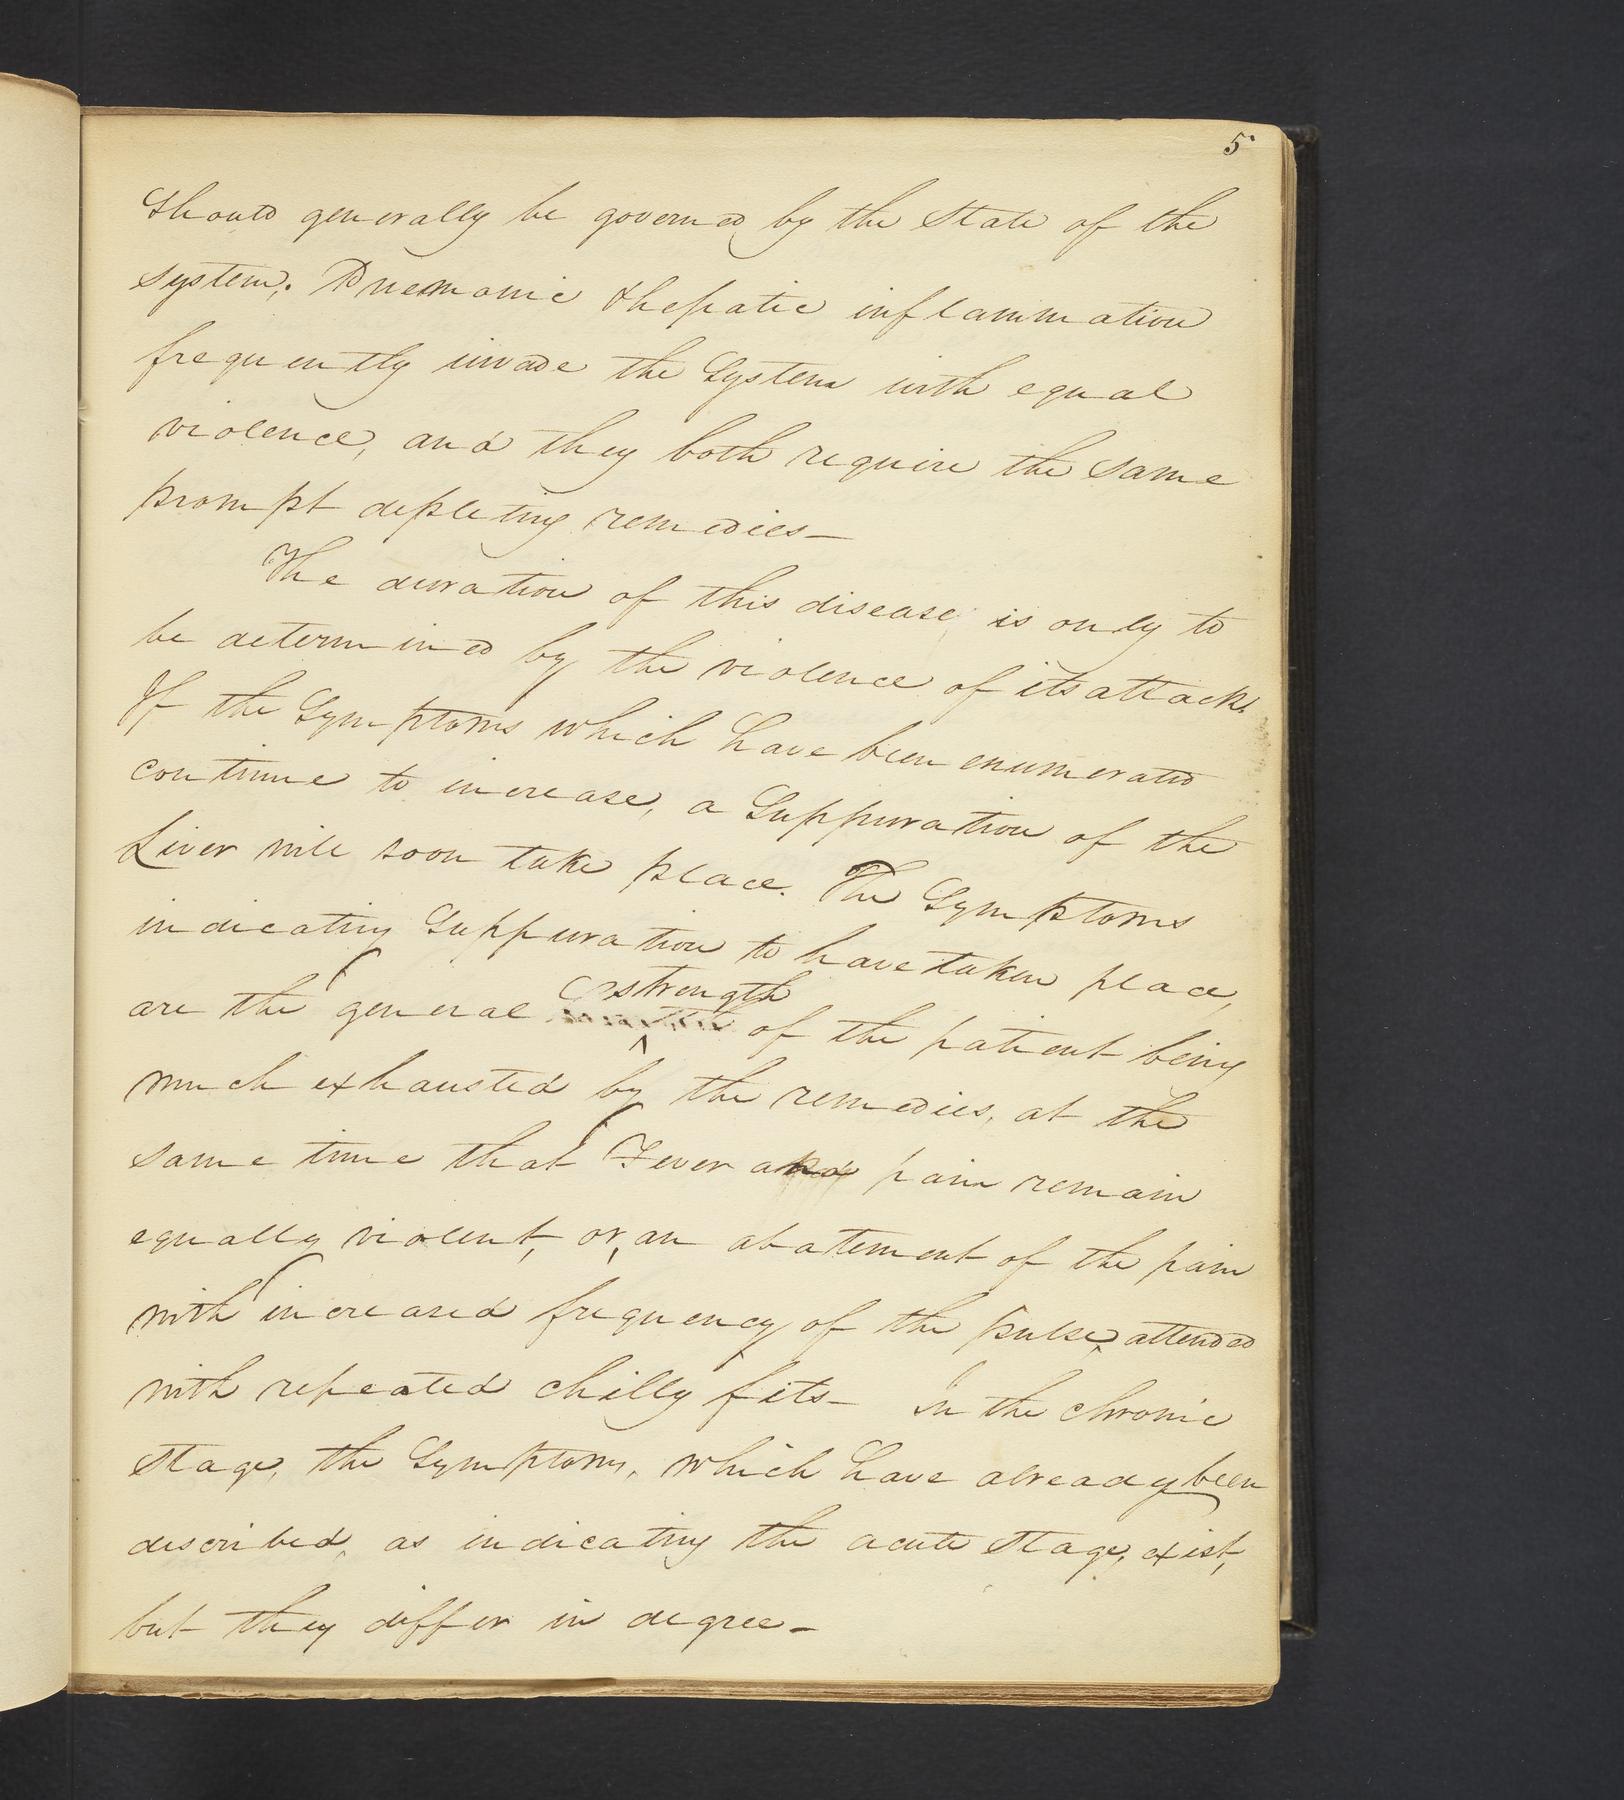 5
Should generally be governed by the State of the
system. Pnemonic & hepatic inflammation
frequently invade the System with equal
violence, and they both require the same
prompt depleting remedies—
The duration of this disease is only to
be determined by the violence of its attack.
If the Symptoms which have been enumerated
continue to increase, a Suppuration of the
Liver will soon take place. The Symptoms
indicating Suppuration to have taken place,
strength
are the general of the patient being
much exhausted by the remedies, at the
same time that Fever and pain remain
equally violent, or, an abatement of the pain
with increased frequency of the pulse, attended
with repeated chilly fits— In the chronic
stage, the Symptoms, which have already been
described, as indicating the acute Stage, exist,
but they differ in degree—